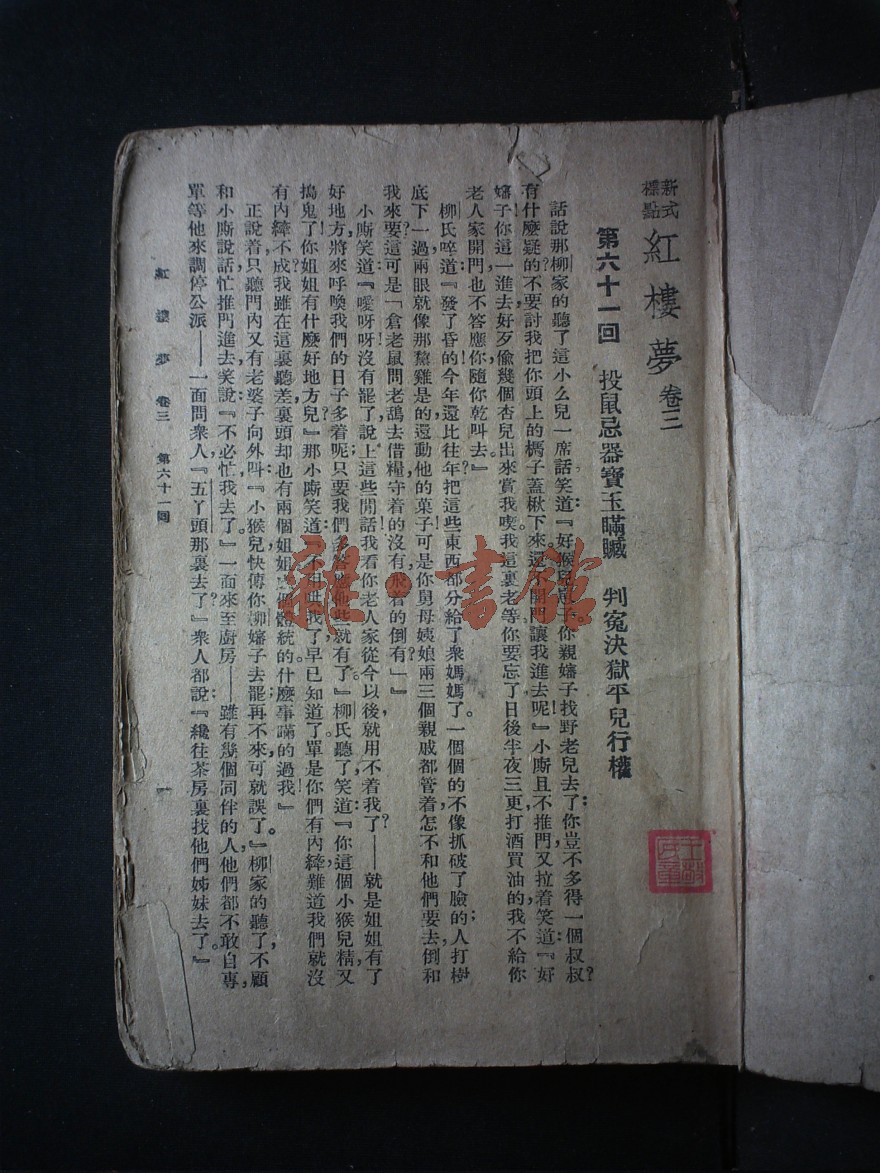 新式標點 紅樓夢 卷三
第六十一回 投鼠忌器寶玉瞞贓 判冤決獄平兒行權
話說那柳家的聽了這小么兒一席話,笑道:『好猴兒崽子!你親嬸子找野老兒去了,你豈不多得一個叔叔?
有什麼疑的?不要討我把你頭上的榪子蓋楸下來。還不開門讓我進去呢』小廝且不推門,又拉着笑道:『好
嬸子!你這一進去,好歹偷幾個杏兒出來賞我喫,我這裏老等,你要忘了,日後半夜三更打酒買油的,我不給你
老人家開門,也不答應你,隨你乾叫去』
柳氏啐道:『發了昏的!今年還比往年?把這些東西都分給了衆媽媽了。一個個的不像抓破了臉的人打樹
底下一過,兩眼就像那黧雞是的,還動他的菓子?可是你舅母姨娘兩三個親戚都管着,怎不和他們要去,倒和
我來要?這可是「倉老鼠問老鴰去借糧,守着的沒有,飛着的倒有」』
小廝笑道:『噯呀呀!沒有罷了,說上這些閒話。我看你老人家從今以後就用不着我了?——就是姐姐有了
好地方,將來呼喚我們的日子多着呢,只要我們多答應他些就有了。』柳氏聽了笑道:『你這個小猴兒精又
搗鬼了!你姐姐有什麼好地方兒?』那小廝笑道:『不用哄我了,早已知道了。單是你們有內縴,難道我們就沒
有內縴不成?我雖在這裏聽差,裏頭却也有兩個姐姐,成個體統的,什麼事瞞的過我!』
正說着,只聽門內又有老婆子向外叫:『小猴兒,快傳你柳嬸子去罷,再不來,可就誤了。』柳家的聽了,不顧
和小廝說話,忙推門進去,笑說:『不必忙,我去了。』一面來至廚房——雖有幾個同伴的人,他們都不敢自專,
單等他來調停公派——一面問衆人:『五丫頭那裏去了?』衆人都說:『纔往茶房裏找他們姊妹去了。』
紅樓夢 卷三 第六十一回 一
雅·書館